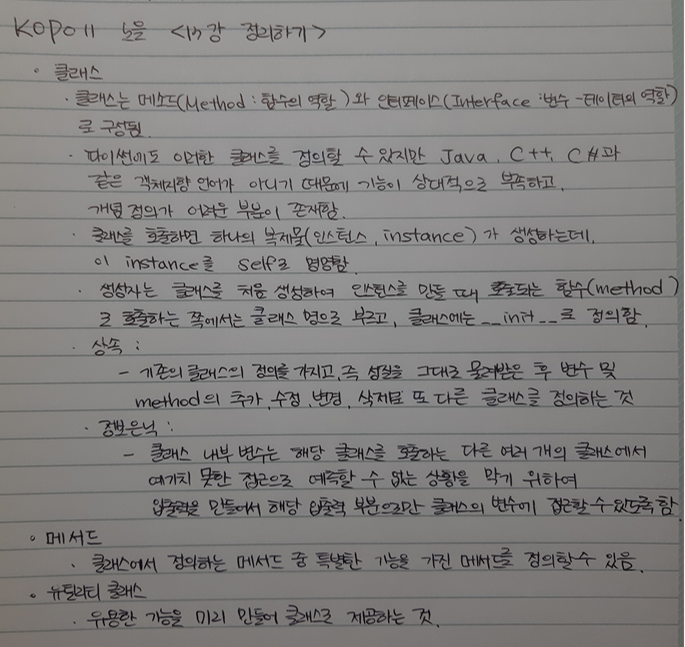 KOPO11 노을 <13강 정리하기>
◦ 클래스
· 클래스는 메소드(Method : 함수의 역할)와 인터페이스(Interface : 변수 - 데이터의 역할)
로 구성됨.
· 파이썬에도 이러한 클래스를 정의할 수 있지만 Java, C++, C#과
같은 객체지향 언어가 아니기 때문에 기능이 상대적으로 부족하고,
개념 정의가 어려운 부분이 존재함.
· 클래스를 호출하면 하나의 복제물(인스턴스, instance)가 생성하는데,
이 instance를 self로 명명함
· 생성자는 클래스를 처음 생성하여 인스턴스를 만들 때 호출되는 함수(method)
로 호출하는 쪽에서는 클래스 명으로 부르고, 클래스에는 __init__로 정의함.
· 상속 :
- 기존의 클래스의 정의를 가지고, 즉 성질을 그대로 물려받은 후 변수 및
method의 추가, 수정, 변경, 삭제로 또 다른 클래스를 정의하는 것
· 정보은닉 :
- 클래스 내부 변수는 해당 클래스를 호출하는 다른 여러 개의 클래스에서
예기치 못한 접근으로 예측할 수 없는 상황을 막기 위하여
입출력을 만들어서 해당 입출력 부분으로만 클래스의 변수에 접근할 수 있도록 함
◦ 메서드
· 클래스에서 정의하는 메서드 중 특별한 기능을 가진 메서드를 정의할 수 있음.
· 유틸리티 클래스
· 유용한 기능을 미리 만들어 클래스로 제공하는 것.